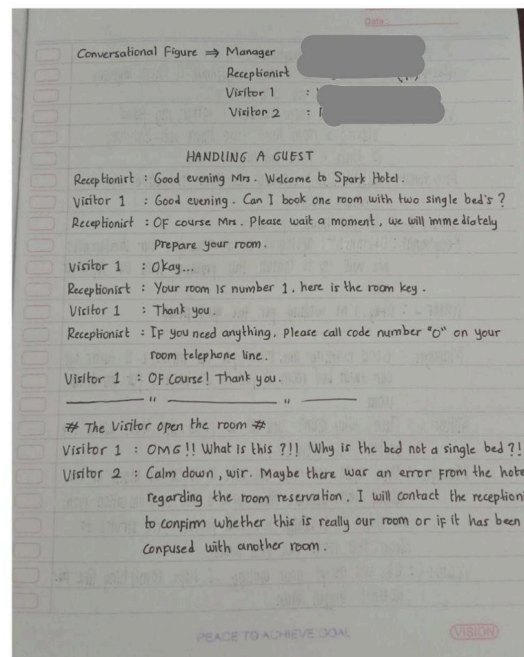 Date :
Conversational Figure ⇒ Manager
Receptionist
Visitor 1 :
Visitor 2 :
HANDLING A GUEST
Receptionist : Good evening Mrs. Welcome to Spark Hotel.
Visitor 1 : Good evening. Can I book one room with two single bed's ?
Receptionist : OF course Mrs. Please wait a moment, we will immediately
Prepare your room.
Visitor 1 : Okay...
Receptionist : Your room is number 1, here is the room key.
Visitor 1 : Thank you.
Receptionist : If you need anything, Please call code number "0" on your
room telephone line.
Visitor 1 : OF Course! Thank you.
# The Visitor open the room #
Visitor 1 : OMG !! What is this ?!! Why is the bed not a single bed ?!
Visitor 2 : Calm down, wir. Maybe there was an error from the hote
regarding the room reservation. I will contact the reception
to confirm whether this is really our room or if it has been
confused with another room.
PEACE TO ACHIEVE GOAL
VISION